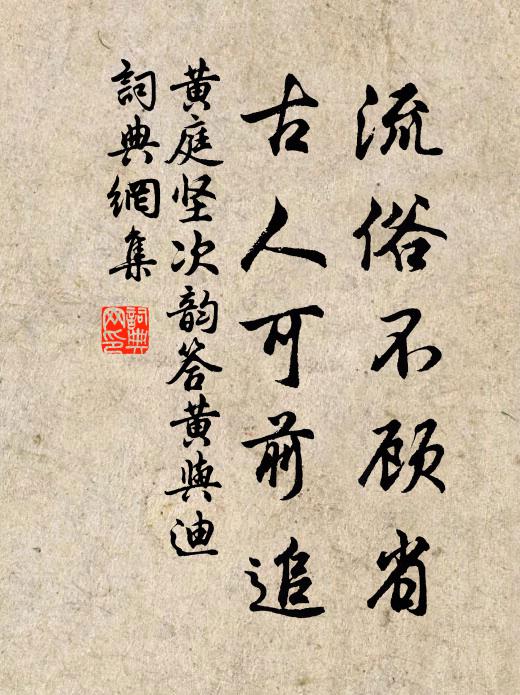 流俗不顾省
古人可前追
黄庭坚次韵答黄與迪
詞典網集
詞典网印